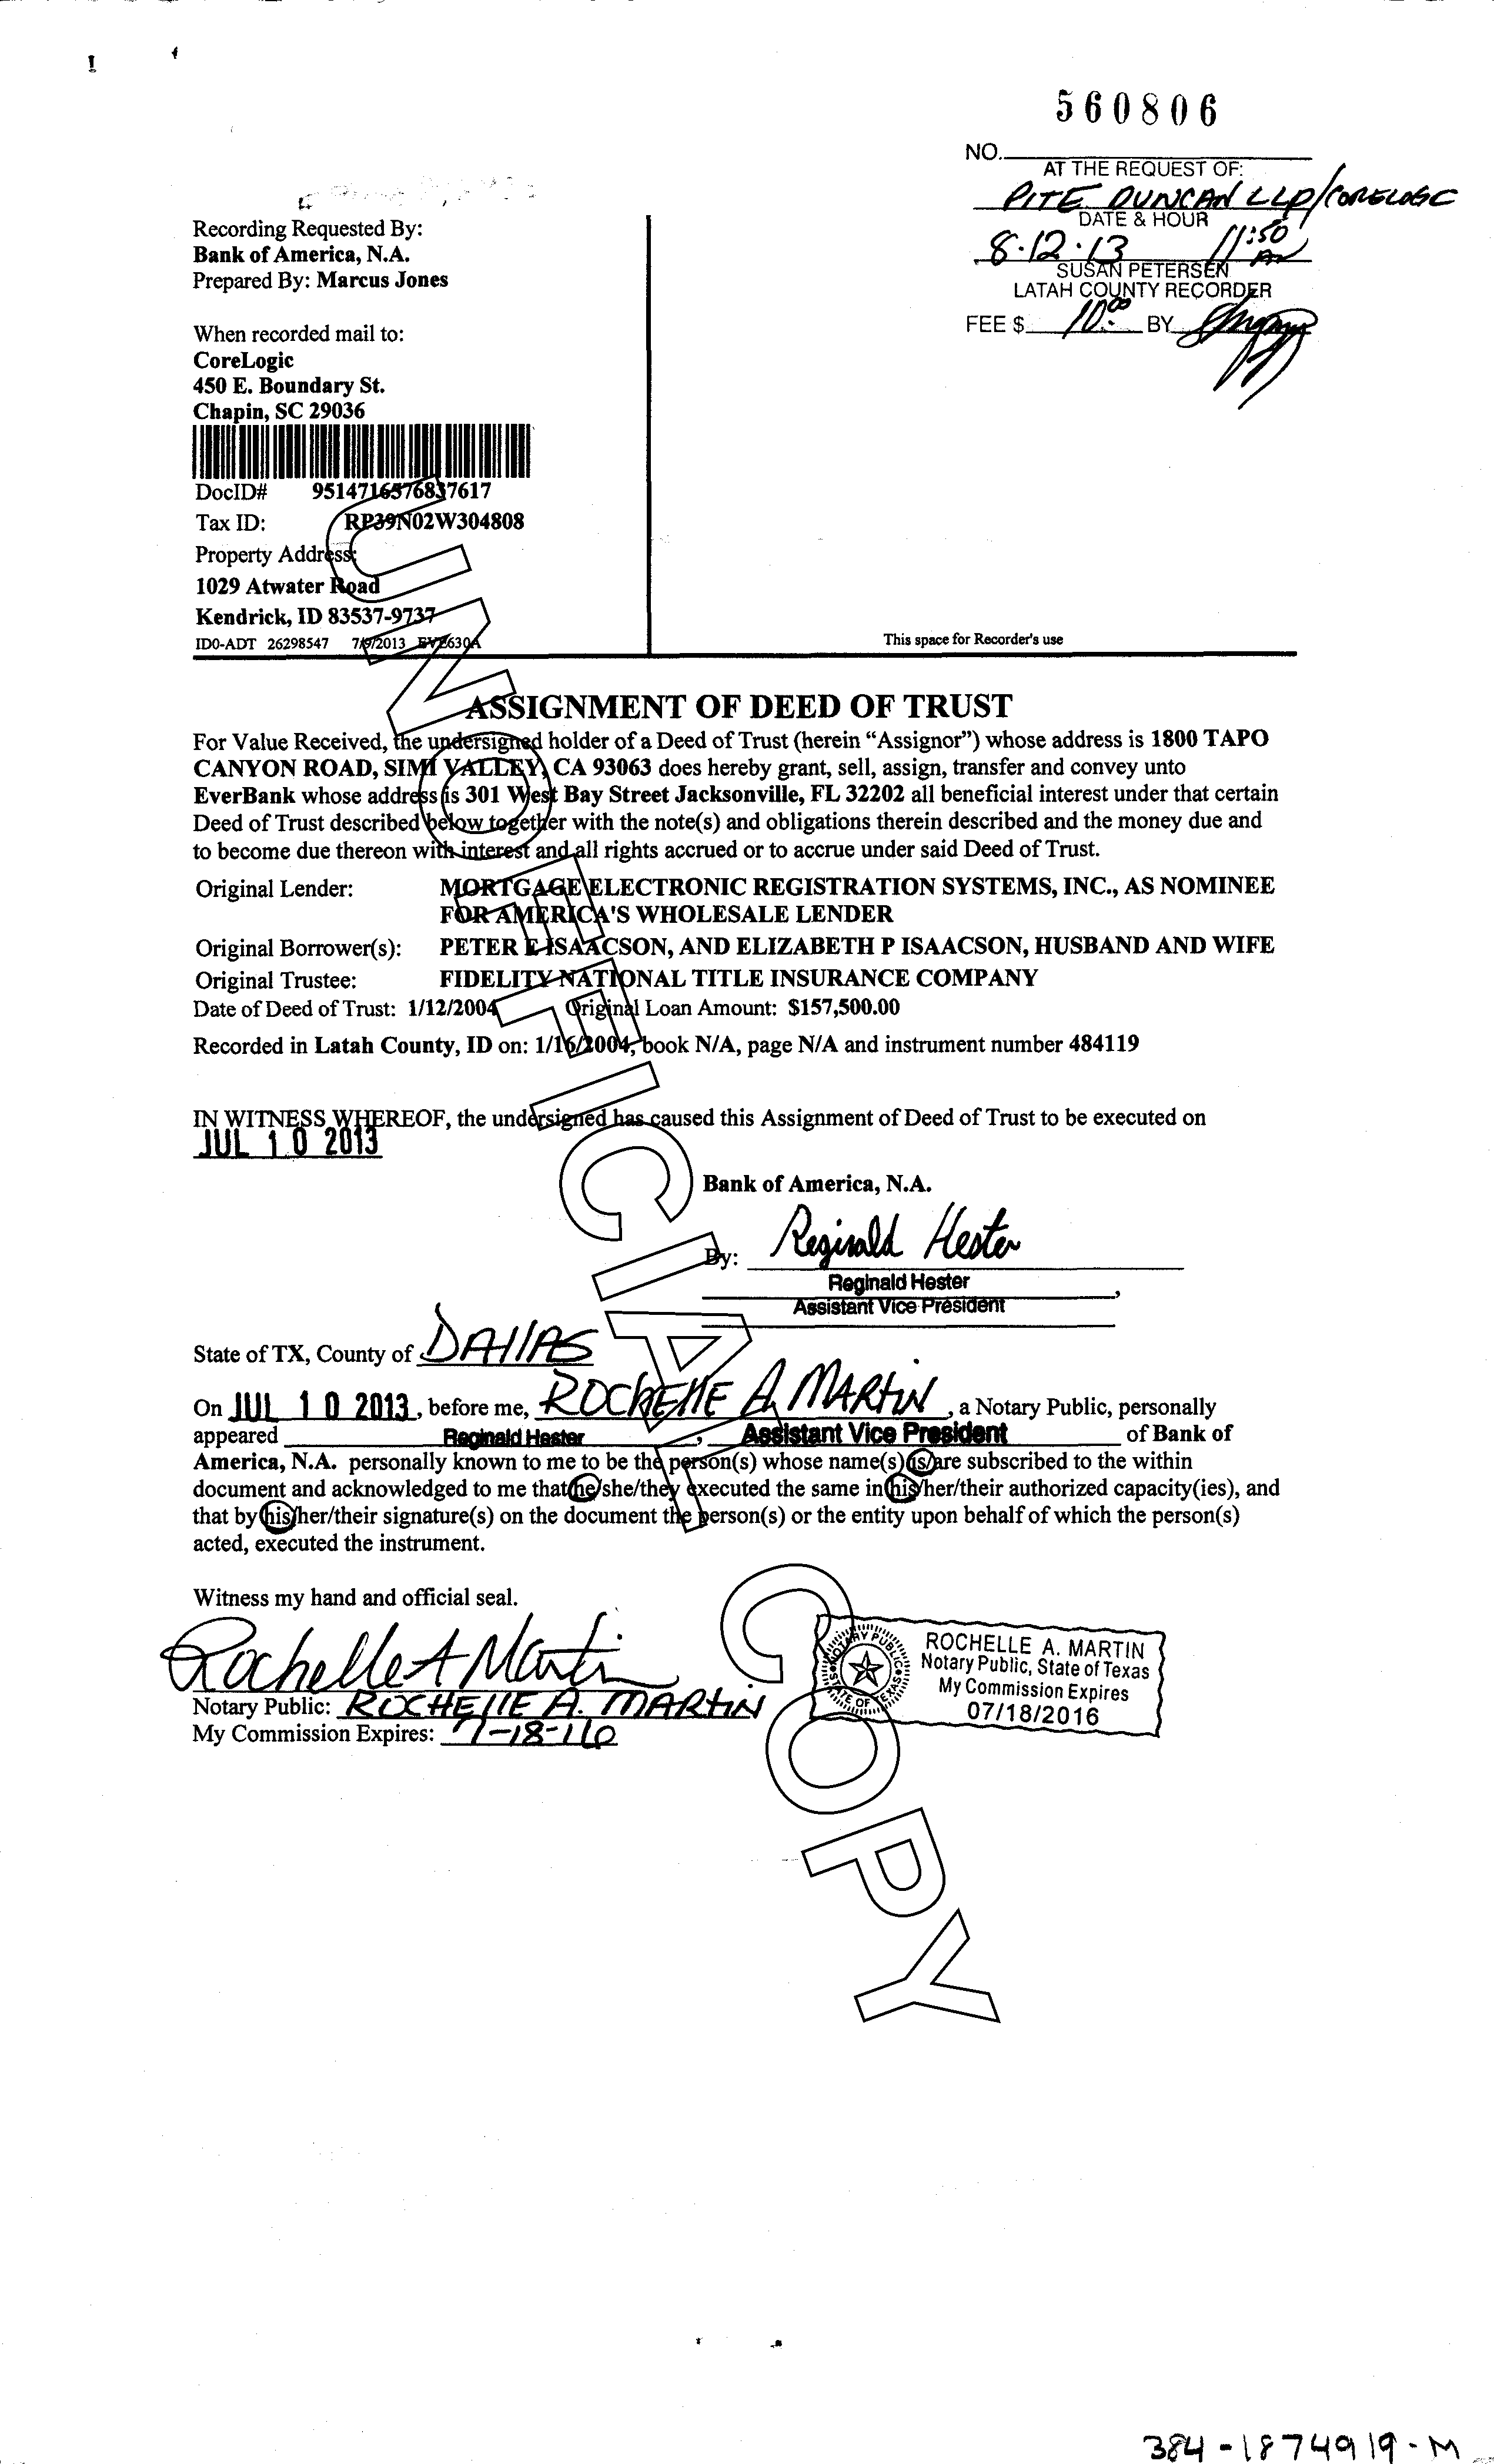 560806
NO.
AT THE REQUEST OF:
PITE DUNCAN LLP/CORELOGIC
DATE & HOUR
8.12.13 11:50 AM
SUSAN PETERSEN
LATAH COUNTY RECORDER
FEE $ 10.00 BY
Recording Requested By:
Bank of America, N.A.
Prepared By: Marcus Jones
When recorded mail to:
CoreLogic
450 E. Boundary St.
Chapin, SC 29036
DocID# 9514716576837617
Tax ID: RP39N02W304808
Property Address:
1029 Atwater Road
Kendrick, ID 83537-9737
ID0-ADT 26298547 7/9/2013 EVE630A
This space for Recorder's use
ASSIGNMENT OF DEED OF TRUST
For Value Received, the undersigned holder of a Deed of Trust (herein “Assignor”) whose address is 1800 TAPO
CANYON ROAD, SIMI VALLEY, CA 93063 does hereby grant, sell, assign, transfer and convey unto
EverBank whose address is 301 West Bay Street Jacksonville, FL 32202 all beneficial interest under that certain
Deed of Trust described below together with the note(s) and obligations therein described and the money due and
to become due thereon with interest and all rights accrued or to accrue under said Deed of Trust.
Original Lender: MORTGAGE ELECTRONIC REGISTRATION SYSTEMS, INC., AS NOMINEE
FOR AMERICA'S WHOLESALE LENDER
Original Borrower(s): PETER E ISAACSON, AND ELIZABETH P ISAACSON, HUSBAND AND WIFE
Original Trustee: FIDELITY NATIONAL TITLE INSURANCE COMPANY
Date of Deed of Trust: 1/12/2004 Original Loan Amount: $157,500.00
Recorded in Latah County, ID on: 1/16/2004, book N/A, page N/A and instrument number 484119
IN WITNESS WHEREOF, the undersigned has caused this Assignment of Deed of Trust to be executed on
JUL 10 2013
Bank of America, N.A.
By: Reginald Hester
Reginald Hester,
Assistant Vice President
State of TX, County of DAllAS
On JUL 10 2013, before me, ROCHEllE A. MARTIN, a Notary Public, personally
appeared Reginald Hester, Assistant Vice President of Bank of
America, N.A. personally known to me to be the person(s) whose name(s) is/are subscribed to the within
document and acknowledged to me that he/she/they executed the same in his/her/their authorized capacity(ies), and
that by his/her/their signature(s) on the document the person(s) or the entity upon behalf of which the person(s)
acted, executed the instrument.
Witness my hand and official seal.
Rochelle A Martin
Notary Public: ROCHEllE A. MARTIN
My Commission Expires: 7-18-16
NOTARY PUBLIC
STATE OF TEXAS
ROCHELLE A. MARTIN
Notary Public, State of Texas
My Commission Expires
07/18/2016
UNOFFICIAL COPY
384-1874919-M